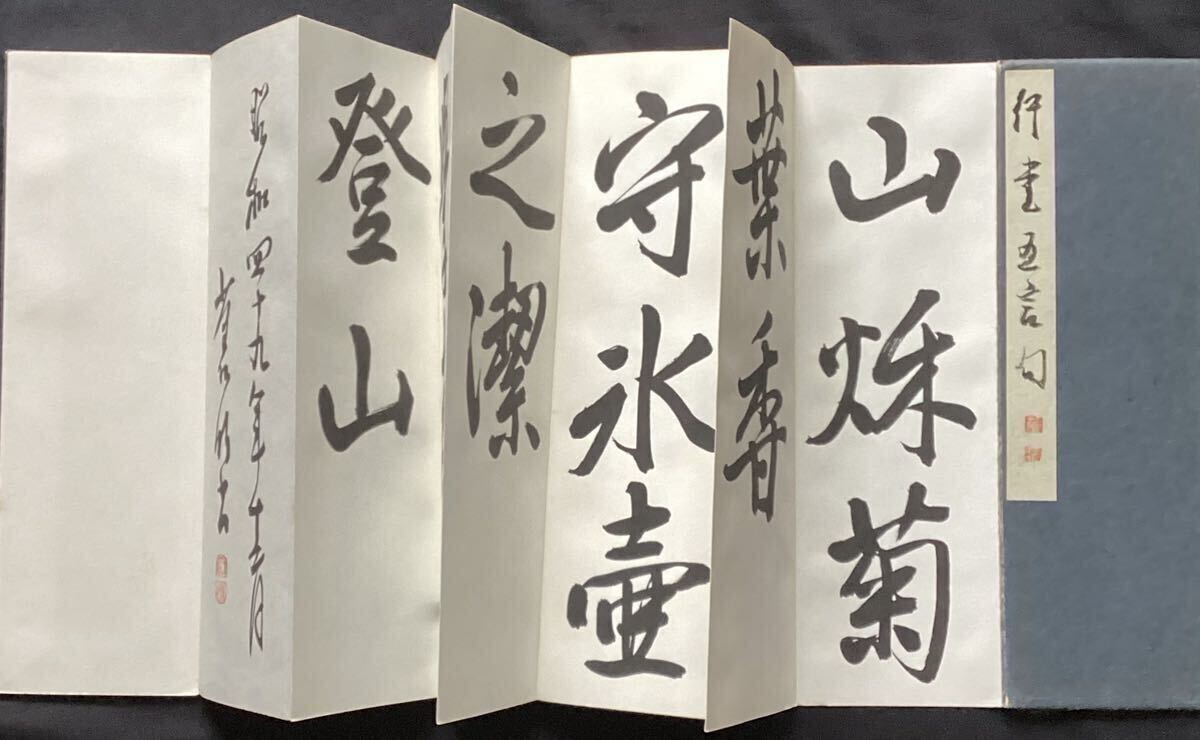 行書五言句
山秌菊
葉香
守氷壷
之潔
登山
昭和四十九年十二月